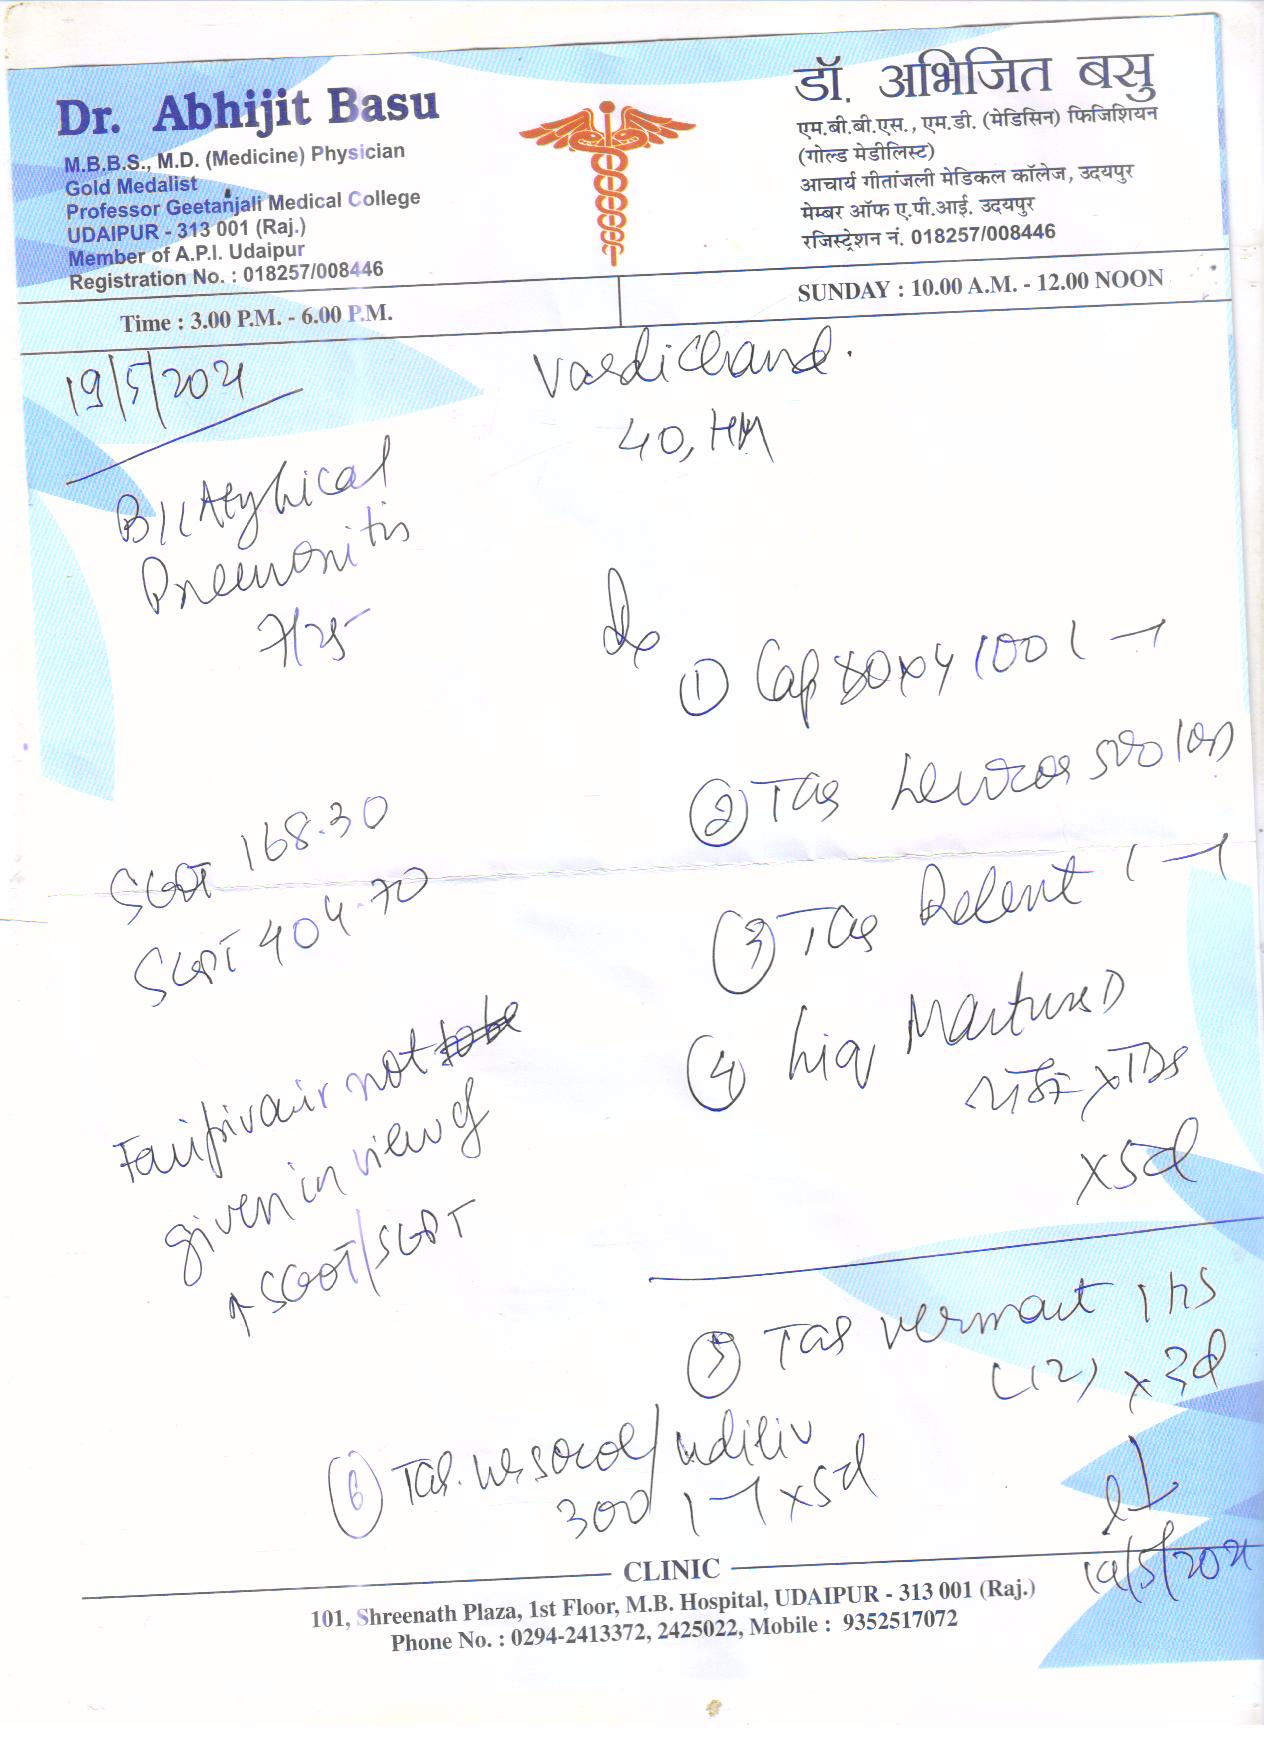 Dr. Abhijit Basu
M.B.B.S., M.D. (Medicine) Physician
Gold Medalist
Professor Geetanjali Medical College
UDAIPUR - 313 001 (Raj.)
Member of A.P.I. Udaipur
Registration No. : 018257/008446
डॉ. अभिजित बसु
एम.बी.बी.एस., एम.डी. (मेडिसिन) फिजिशियन
(गोल्ड मेडीलिस्ट)
आचार्य गीतांजली मेडिकल कॉलेज, उदयपुर
मेम्बर ऑफ ए.पी.आई. उदयपुर
रजिस्ट्रेशन नं. 018257/008446
Time : 3.00 P.M. - 6.00 P.M.
SUNDAY : 10.00 A.M. - 12.00 NOON
19/5/2021
Vardichand.
40, HM
B/L Atyhical
Pneumonitis
7/25
① Cap 100 1 - 1
② Tab 500 1 OD
③ Tab Relent 1 - 1
④ Liq D
x TDS
x 5d
SGOT 168.30
SGPT 404.70
not
given in view of
↑ SGOT/SGPT
⑤ Tab vermact 1 hs
(12) x 3d
⑥ Tab. /udiliv
300 1 - 1 x 5d
19/5/2021
CLINIC
101, Shreenath Plaza, 1st Floor, M.B. Hospital, UDAIPUR - 313 001 (Raj.)
Phone No. : 0294-2413372, 2425022, Mobile : 9352517072